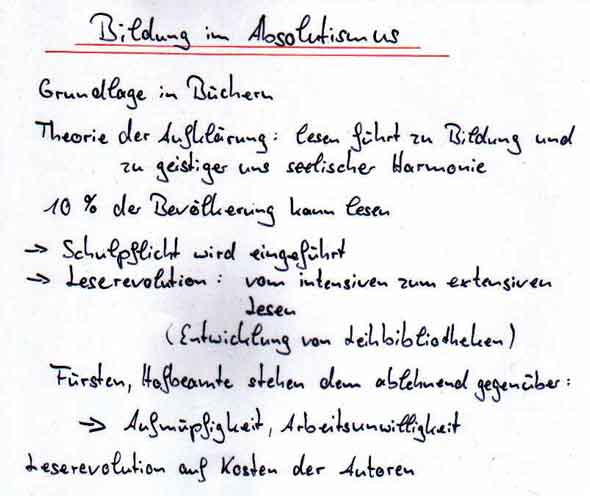 Bildung im Absolutismus
Grundlage in Büchern
Theorie der Aufklärung: lesen führt zu Bildung und
zu geistiger uns seelischer Harmonie
10 % der Bevölkerung kann lesen
→ Schulpflicht wird eingeführt
→ Leserevolution: vom intensiven zum extensiven
Lesen
(Entwicklung von Leihbibliotheken)
Fürsten, Hofbeamte stehen dem ablehnend gegenüber:
→ Aufmüpfigkeit, Arbeitsunwilligkeit
Leserevolution auf Kosten der Autoren